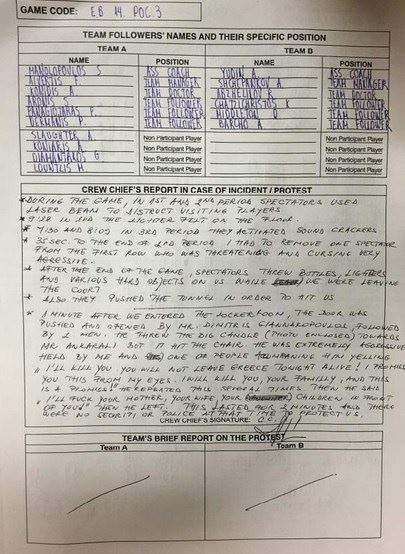 GAME CODE: EB 14. POC 3
TEAM FOLLOWERS' NAMES AND THEIR SPECIFIC POSITION
TEAM A TEAM B
NAME POSITION NAME POSITION
MANOLOPOULOS S ASS COACH YUDIN A ASS COACH
ALVERTIS F TEAM MANAGER SHCHEPANKOV A TEAM MANAGER
KONIDIS A TEAM DOCTOR ABZHELILOV R TEAM DOCTOR
ARONIS S TEAM FOLLOWER CHATZICHRISTOS K TEAM FOLLOWER
PANAGIOTARAS P. TEAM FOLLOWER MIDDLETON D TEAM FOLLOWER
DERMANIS P. TEAM FOLLOWER BARCHO A TEAM FOLLOWER
SLAUGHTER A Non Participant Player Non Participant Player
KONIARIS A Non Participant Player Non Participant Player
DIAMANTAKOS G Non Participant Player Non Participant Player
LOUNTZIS M Non Participant Player Non Participant Player
CREW CHIEF'S REPORT IN CASE OF INCIDENT / PROTEST
* DURING THE GAME, IN 1ST AND 2ND PERIOD SPECTATORS USED
LASER BEAM TO DISTRUCT VISITING PLAYERS.
* 9:28 IN 3RD THE LIGHTER FELT ON THE FLOOR.
* 7:30 AND 8:09 IN 3RD PERIOD THEY ACTIVATED SOUND CRACKERS
* 35 SEC. TO THE END OF 2ND PERIOD I HAD TO REMOVE ONE SPECTATOR
FROM THE FIRST ROW WHO WAS THREATENING AND CURSING VERY
AGRESSIVE.
* AFTER THE END OF THE GAME, SPECTATORS THREW BOTTLES, LIGHTERS
AND VARIOUS HARD OBJECTS ON US WHILE WE WERE LEAVING
THE COURT
* ALSO THEY PUSHED THE TUNNEL IN ORDER TO HIT US
* 1 MINUTE AFTER WE ENTERED THE LOCKER ROOM, THE DOOR WAS
PUSHED AND OPENED BY MR. DIMITRIS GIANNAKOPOULOS, FOLLOWED
BY 2 MEN. HE THREW THE BIG CANDLE (PHOTO ENCLOSED) TOWARDS
MR. ANKARALI BUT IT HIT THE CHAIR. HE WAS EXTREMELY AGGRESSIVE
HELD BY ME AND ONE OF PEOPLE HIM YELLING
"I'LL KILL YOU. YOU WILL NOT LEAVE GREECE TONIGHT ALIVE! I PROMISE
YOU THIS FROM MY EYES. I WILL KILL YOU, YOUR FAMILY, AND THIS
IS A PROMISE!" HE REPEATED THIS SEVERAL TIMES. THEN HE SAID
"I'LL FUCK YOUR MOTHER, YOUR WIFE, YOUR CHILDREN IN FRONT
OF YOU!" THEN HE LEFT. THIS LASTED FOR 2 MINUTES AND THERE
WERE NO SECURITI OR POLICE AT THAT TIME TO PROTECT US.
CREW CHIEF'S SIGNATURE: C.C.
TEAM'S BRIEF REPORT ON THE PROTEST
Team A Team B